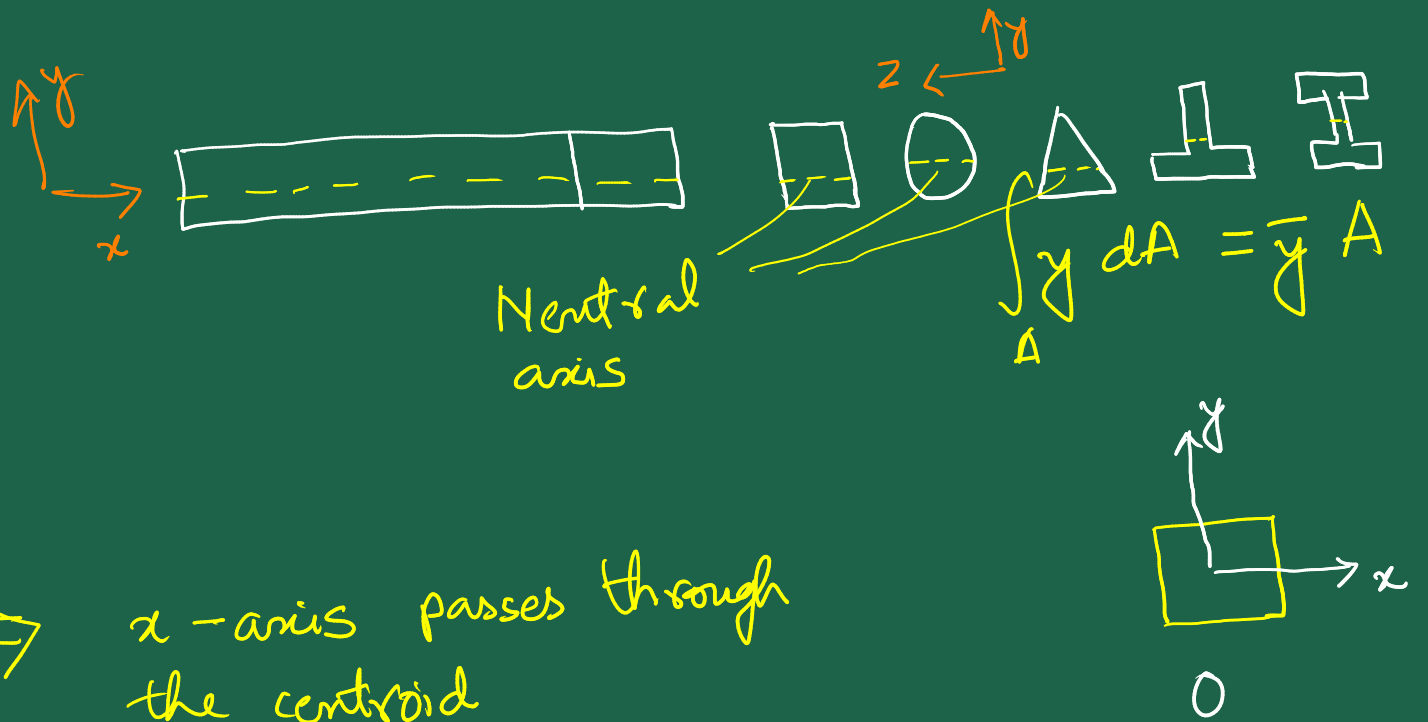 y
x
z
y
Neutral
axis
∫ y dA = ȳ A
A
y
x
⇒ x-axis passes through
the centroid
0